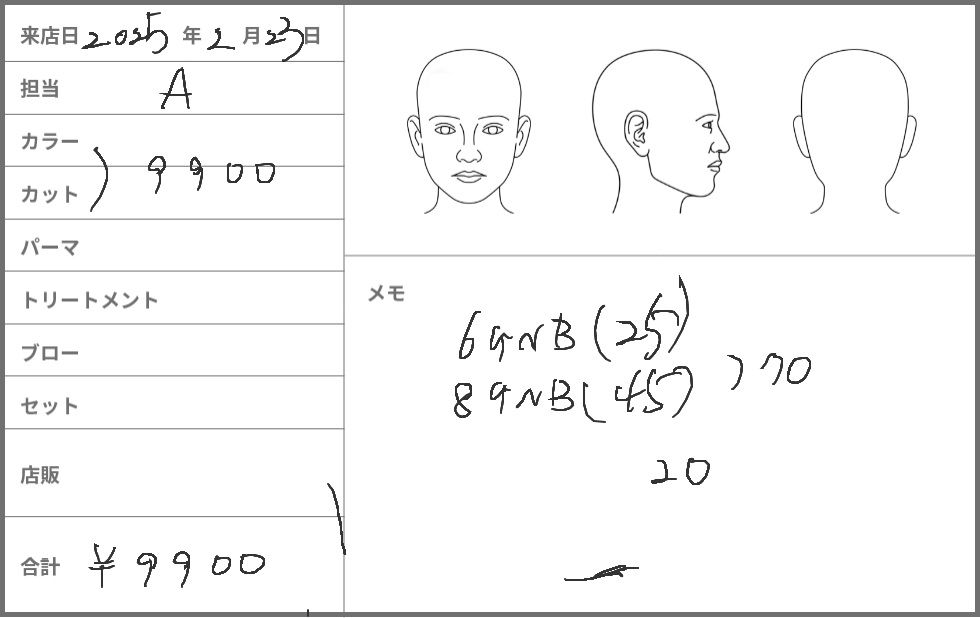 来店日 2025 年 2 月 23 日
担当 A
カラー
カット ) 9900
パーマ
トリートメント
ブロー
セット
店販
合計 ¥9900
メモ
69NB (25)
89NB (45) ) 70
20